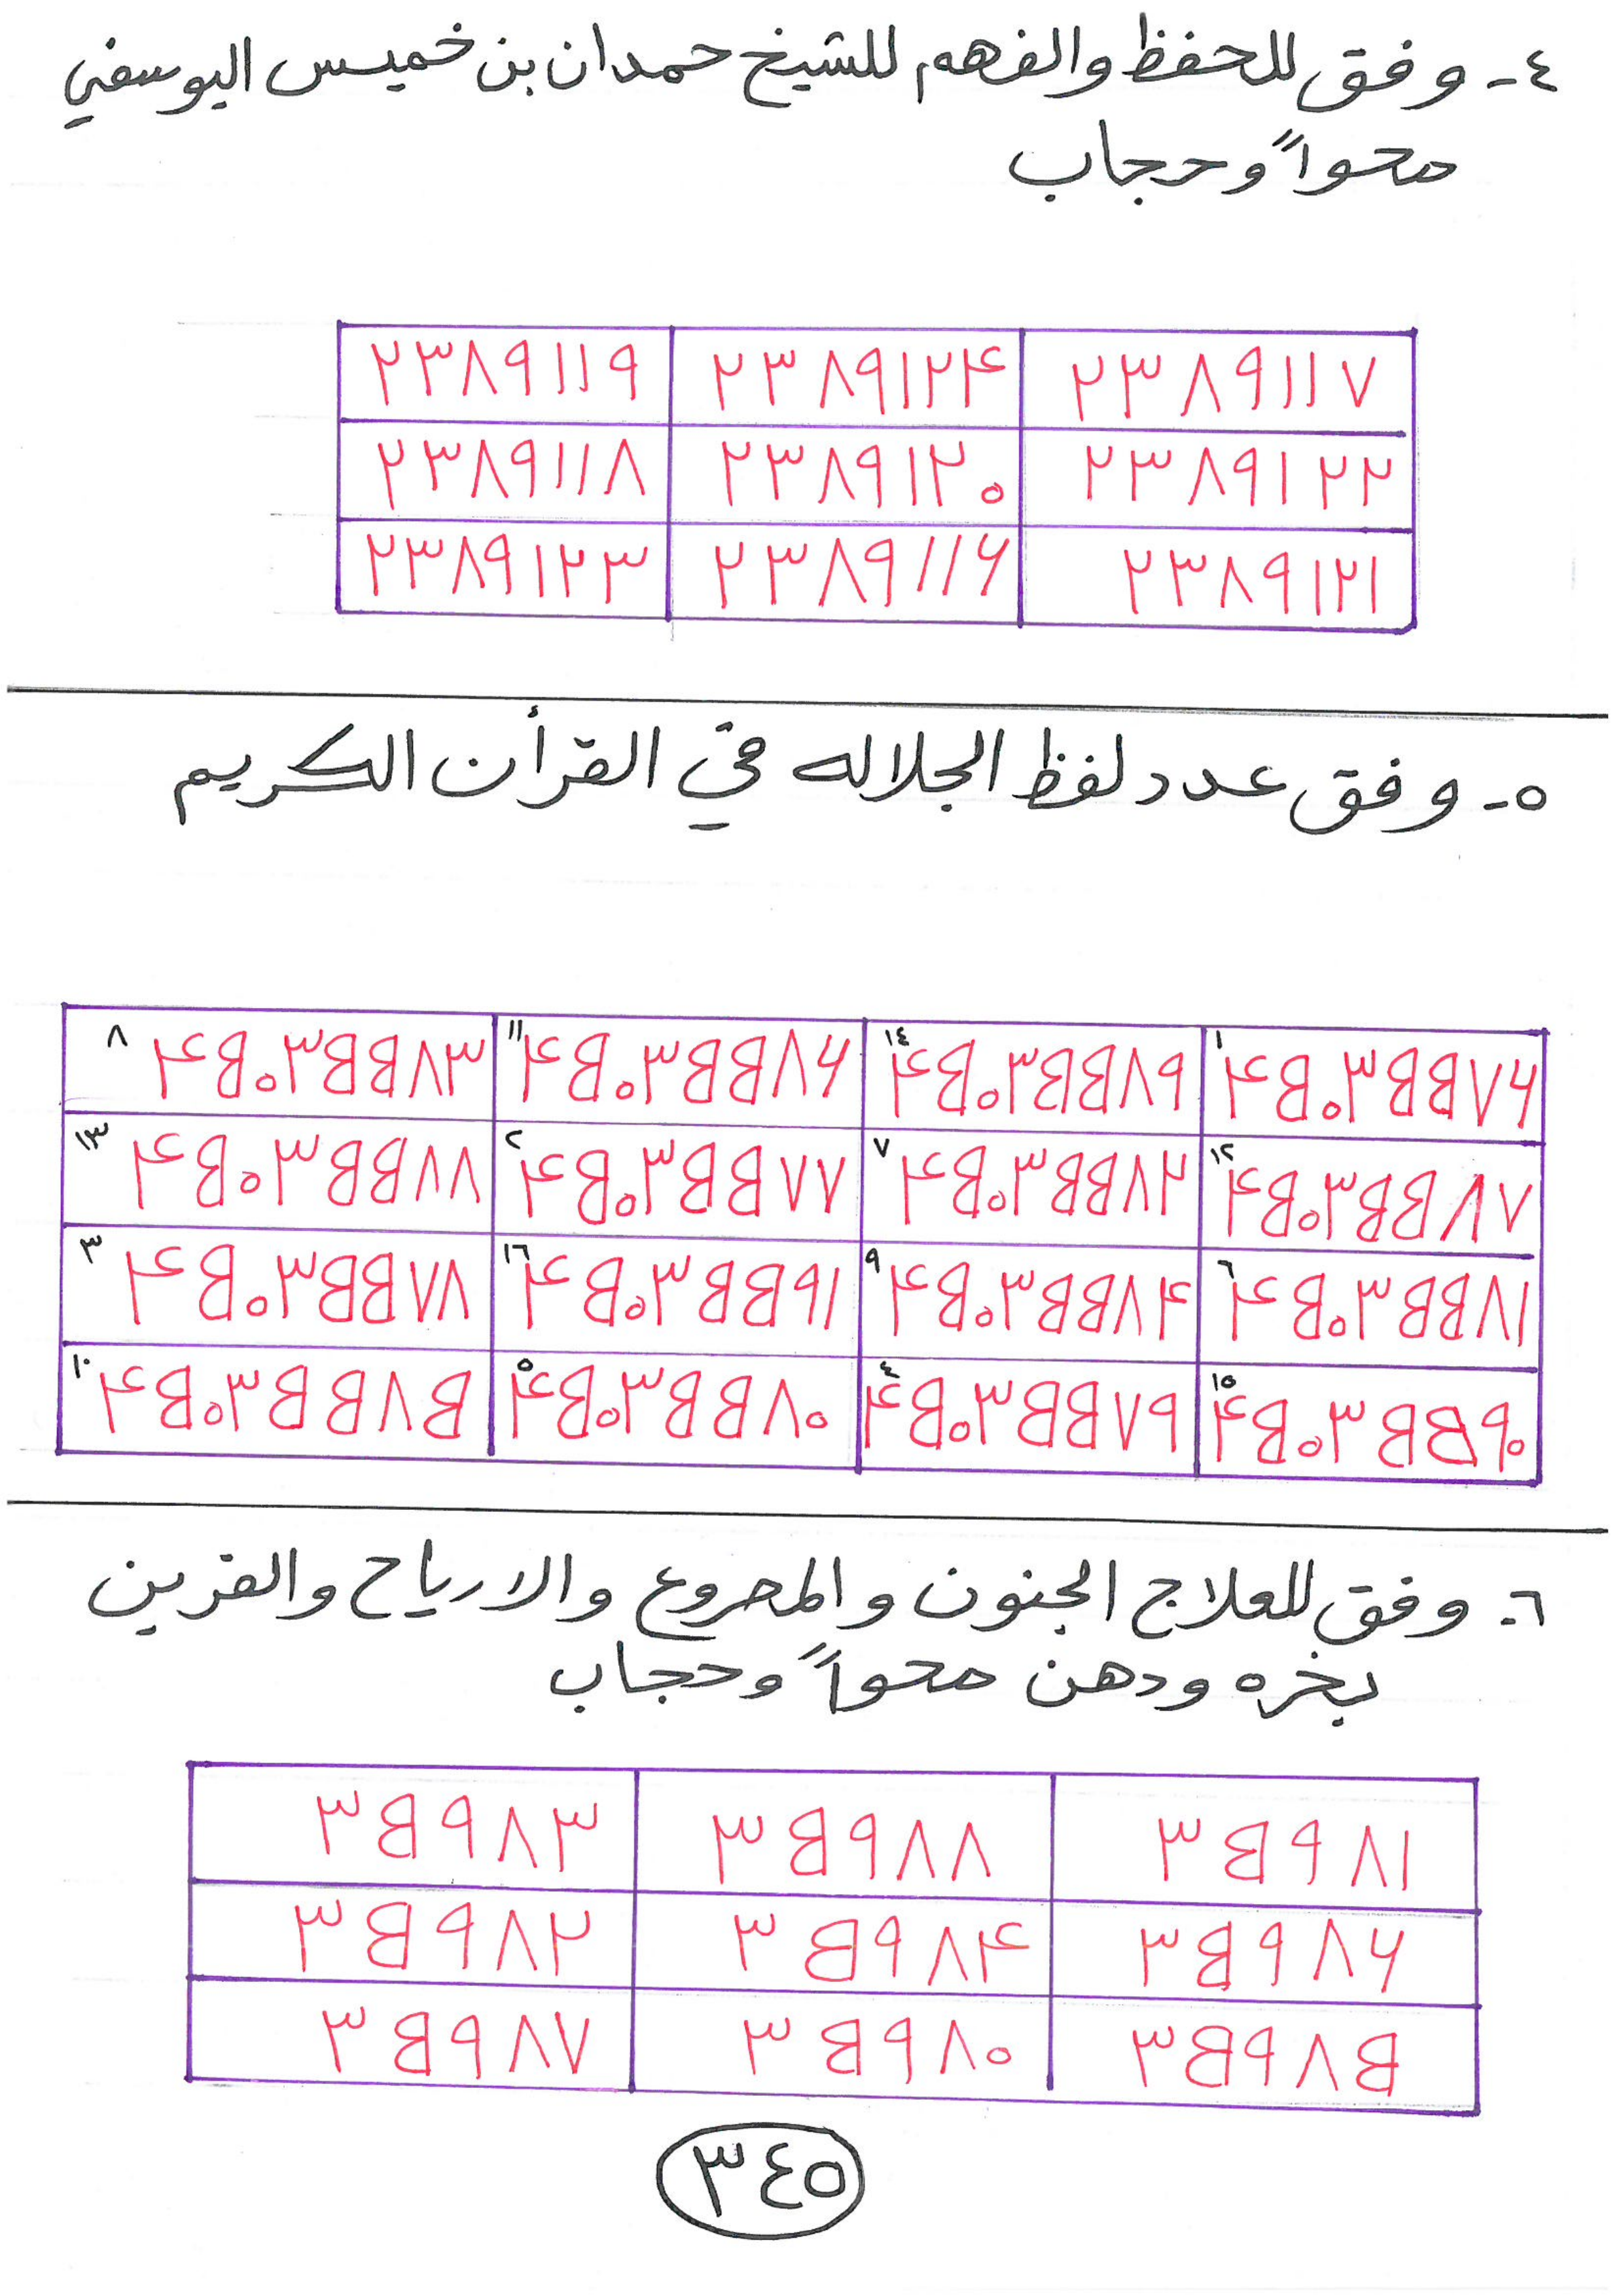 ٤- وفق للحفظ والفهم للشيخ حمدان بن خميس اليوسفي
محواً وحجاب
٢٣٨٩١١٧ ٢٣٨٩١٢۴ ٢٣٨٩١١٩
٢٣٨٩١٢٢ ٢٣٨٩١٢٠ ٢٣٨٩١١٨
٢٣٨٩١٢١ ٢٣٨٩١١۶ ٢٣٨٩١٢٣
٥- وفق عدد لفظ الجلاله في القرأن الكريم
١ ۴٥٠٣٥٥٧۶ ١٤ ۴٥٠٣٥٥٨٩ ١١ ۴٥٠٣٥٥٨۶ ٨ ۴٥٠٣٥٥٨٣
١٢ ۴٥٠٣٥٥٨٧ ٧ ۴٥٠٣٥٥٨٢ ٢ ۴٥٠٣٥٥٧٧ ١٣ ۴٥٠٣٥٥٨٨
٦ ۴٥٠٣٥٥٨١ ٩ ۴٥٠٣٥٥٨۴ ١٦ ۴٥٠٣٥٥٩١ ٣ ۴٥٠٣٥٥٧٨
١٥ ۴٥٠٣٥٥٩٠ ٤ ۴٥٠٣٥٥٧٩ ٥ ۴٥٠٣٥٥٨٠ ١٠ ۴٥٠٣٥٥٨٥
٦- وفق للعلاج الجنون والمصروع والارياح والقرين
بخره ودهن محواً وحجاب
٣٥٩٨١ ٣٥٩٨٨ ٣٥٩٨٣
٣٥٩٨۶ ٣٥٩٨۴ ٣٥٩٨٢
٣٥٩٨٥ ٣٥٩٨٠ ٣٥٩٨٧
٣٤٥